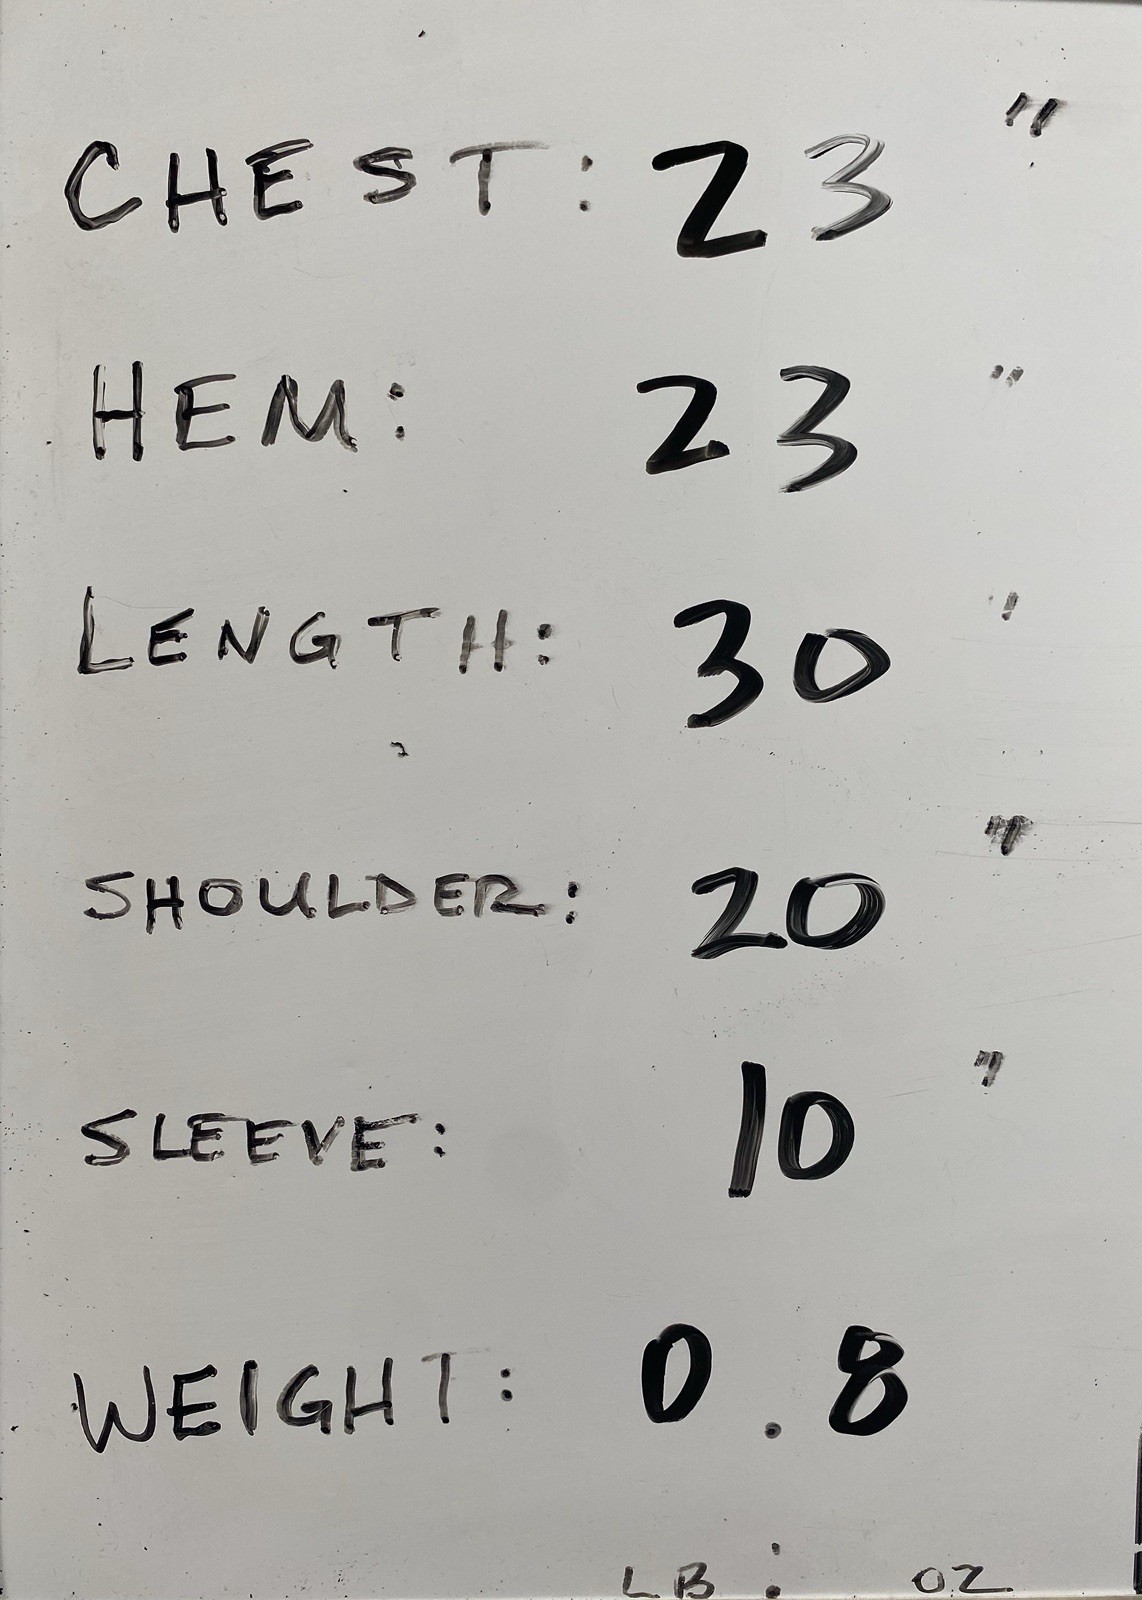 CHEST: 23 "
HEM: 23 "
LENGTH: 30 "
SHOULDER: 20 "
SLEEVE: 10 "
WEIGHT: 0.8
LB : OZ